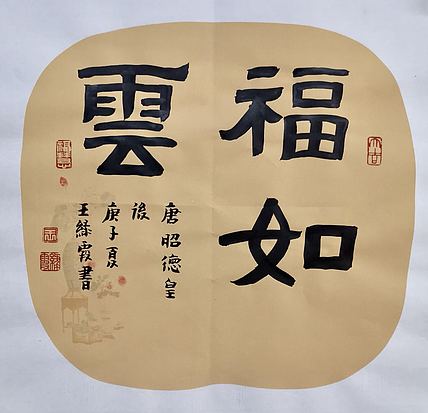 福如
雲
唐昭德皇
後
庚子夏
王綠霞書